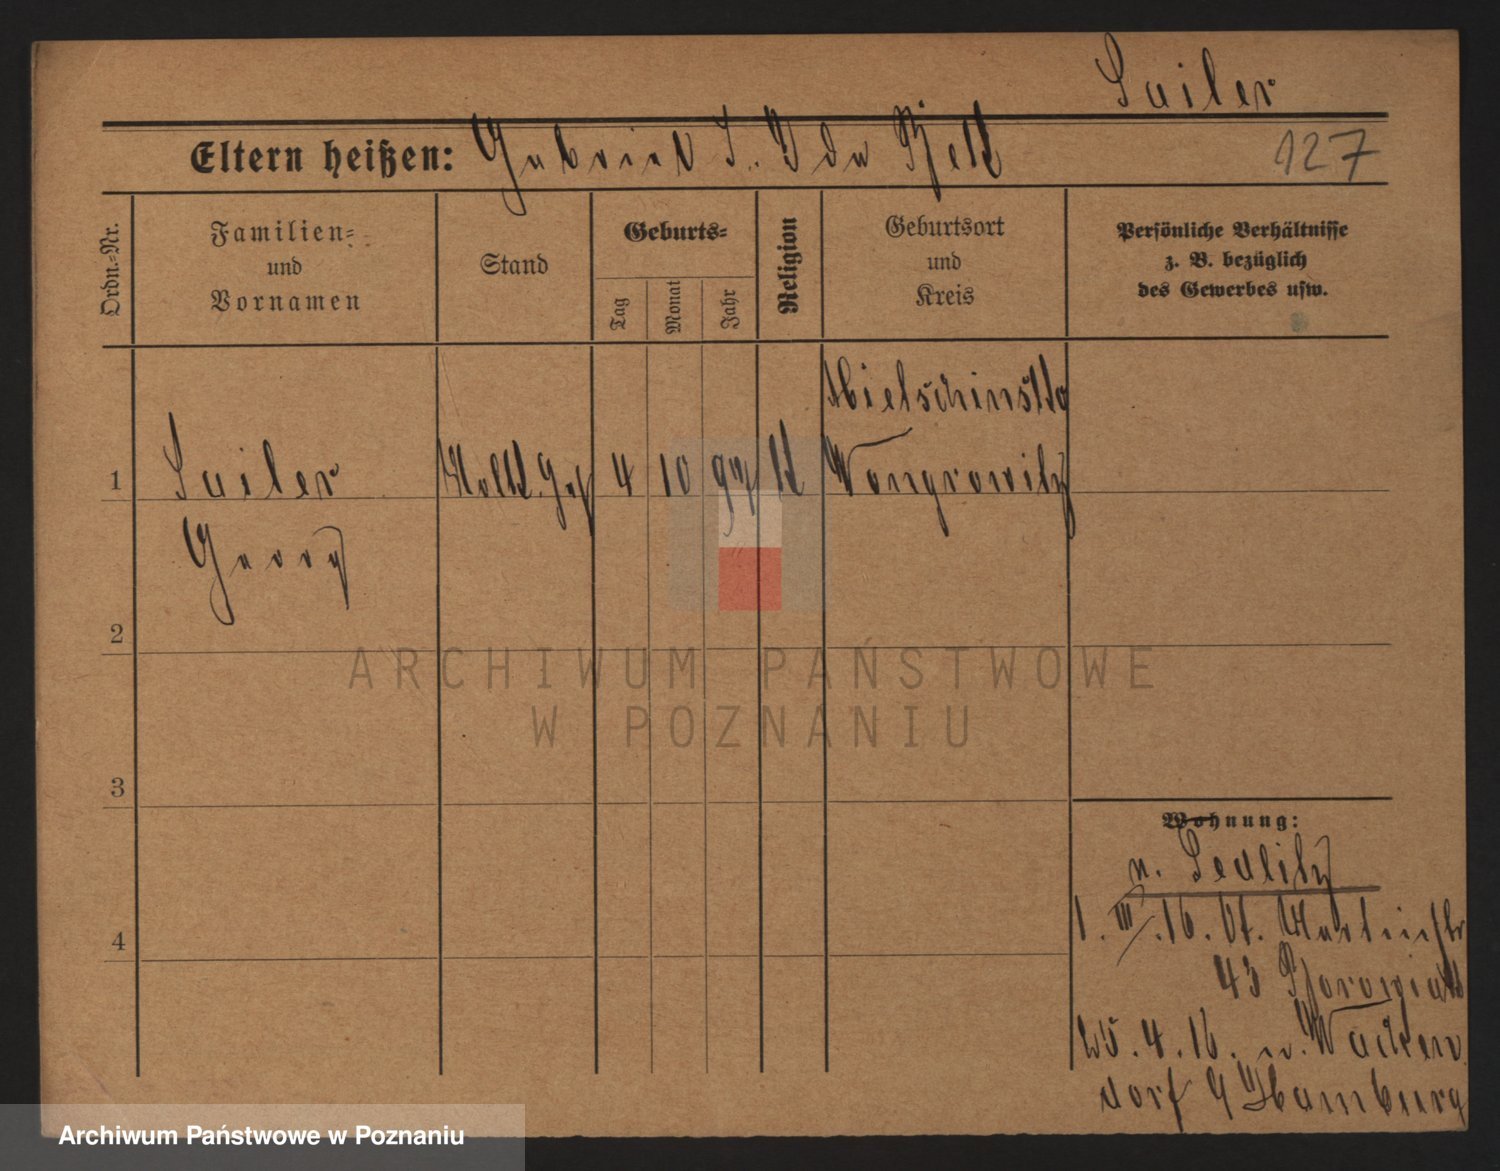 Sailer
Eltern heißen: Gabriel S. Ida
127
Ordn.-Nr.
Familien-
und
Vornamen
Stand
Geburts-
Tag
Monat
Jahr
Religion
Geburtsort
und
Kreis
Persönliche Verhältnisse
z. B. bezüglich
des Gewerbes usw.
1 Sailer 4 10 97 k Wongrowitz
Georg
2
3
4
ARCHIWUM PAŃSTWOWE
W POZNANIU
Wohnung:
n. Sedlitz
1. III. 16.
43
25. 4. 16. n. Wacken
dorf Hamburg
Archiwum Państwowe w Poznaniu